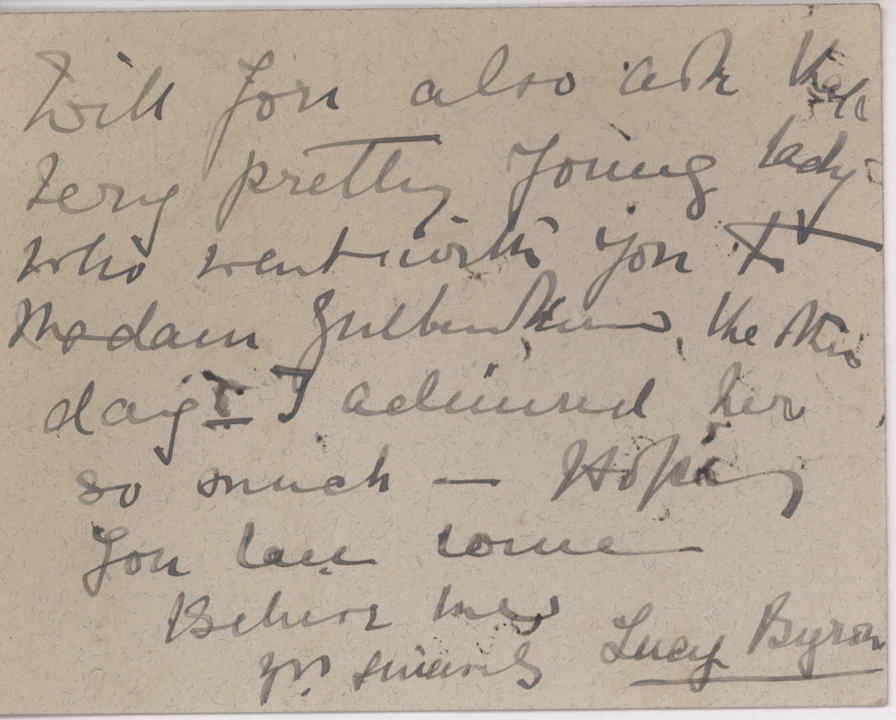 Will you also ask that
very pretty young lady
who went with you to
Madam Gulbenkian, the other
day I admired her
so much — Hoping
you can come
Believe me
Yrs sincerely Lucy Byron